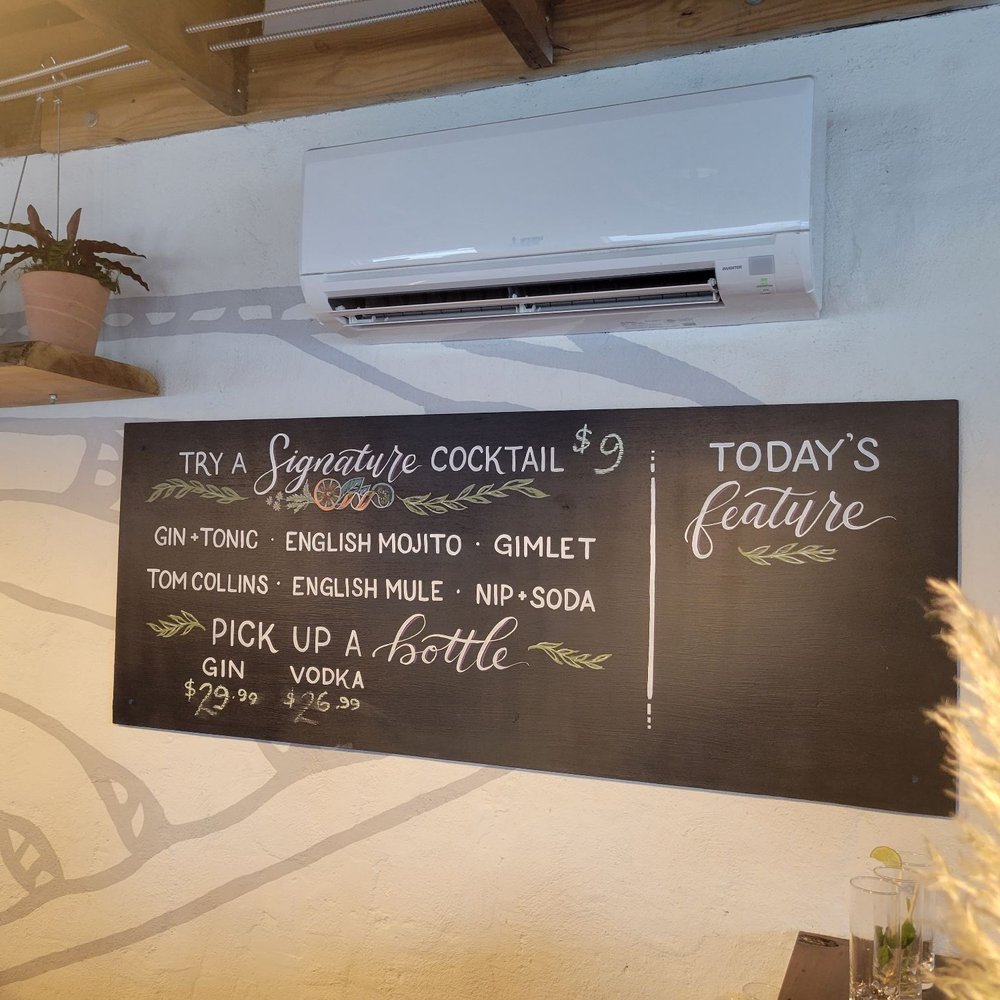 INVERTER
TRY A Signature COCKTAIL $9
GIN + TONIC · ENGLISH MOJITO · GIMLET
TOM COLLINS · ENGLISH MULE · NIP + SODA
PICK UP A bottle
GIN VODKA
$29.99 $26.99
TODAY'S
feature